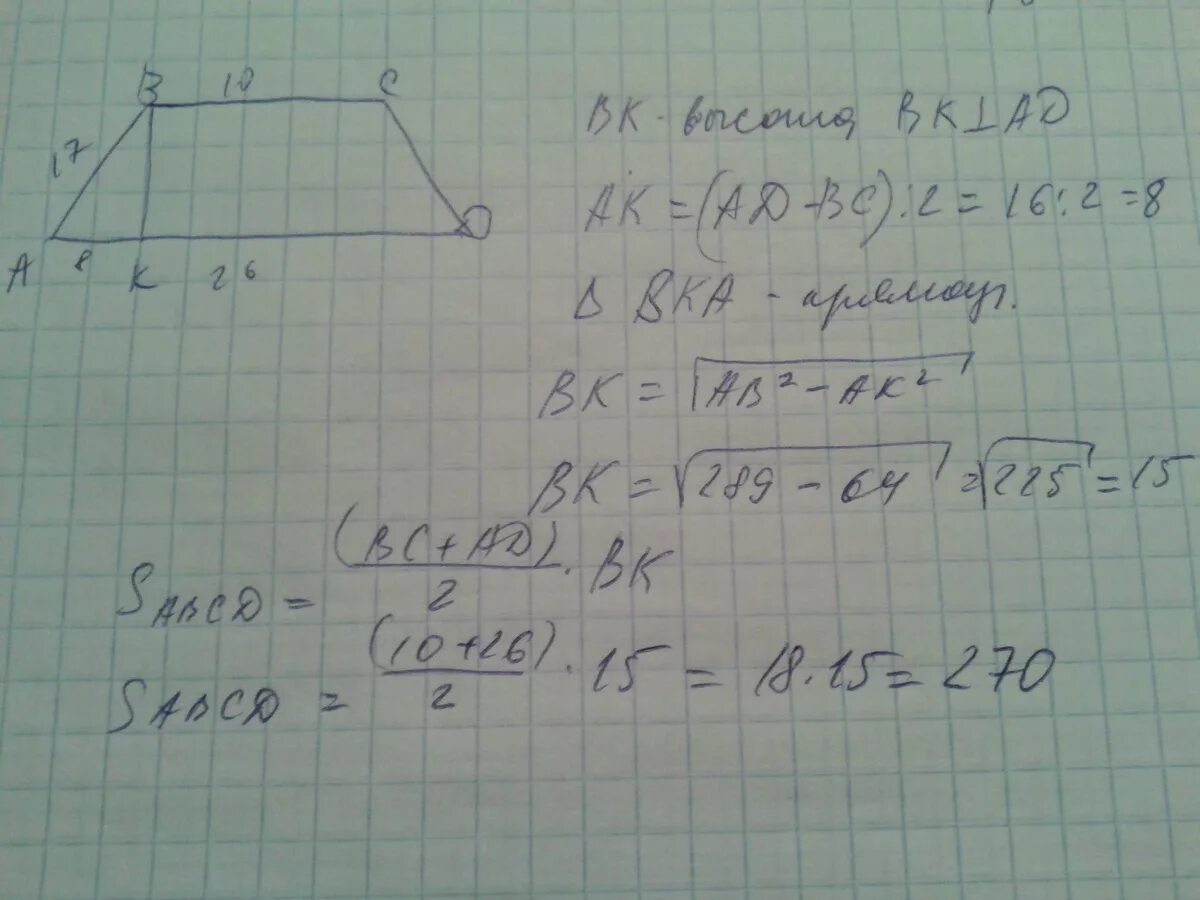 B 10 C
17
A 8 K 26 D
BK - высота, BK⊥AD
AK = (AD - BC) : 2 = 16 : 2 = 8
Δ BKA - прямоуг.
BK = √(AB² - AK²)
BK = √(289 - 64) = √225 = 15
S ABCD = (BC + AD) / 2 · BK
S ABCD = (10 + 26) / 2 · 15 = 18 · 15 = 270